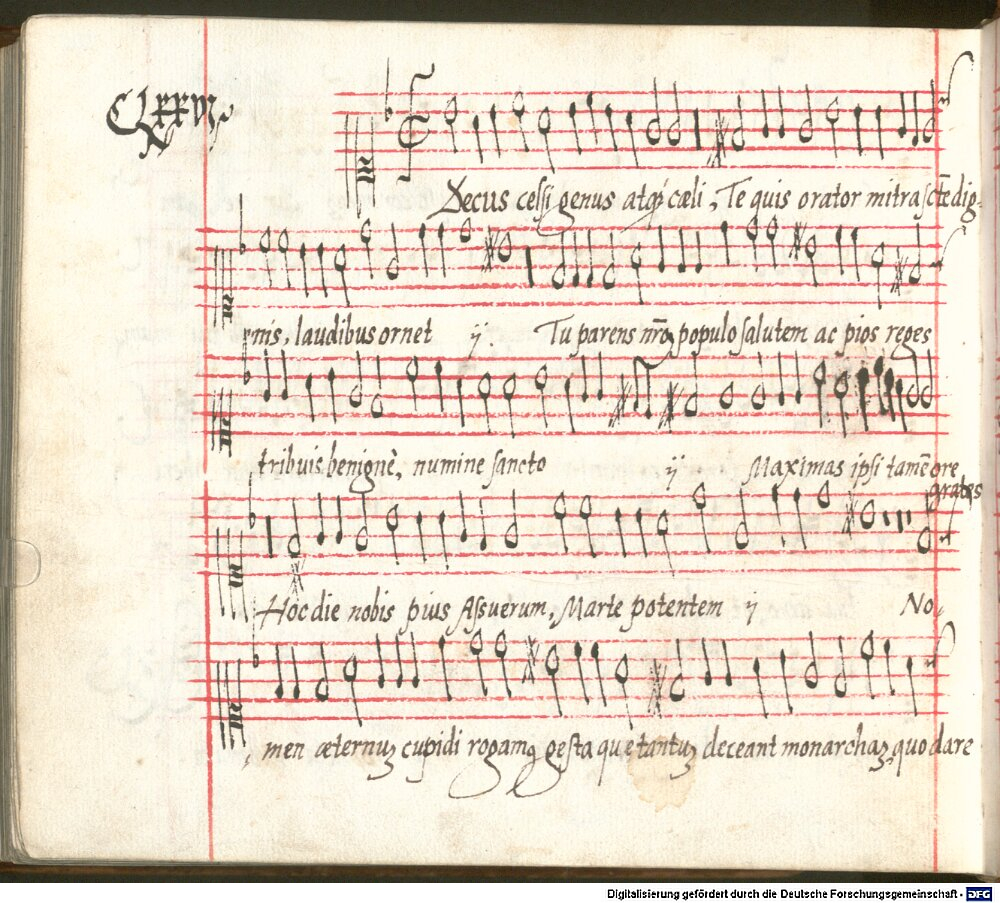 CLXXVI
Decus celsi genus atq̧ cæli, Te quis orator mitra sctẽ dig-
nis, laudibus ornet ij. Tu parens nr̃q populo salutem ac pios reges
tribuis benignè, numine sancto ij Maximas ipsi tamẽ ore
grates
Hoc die nobis pius Assuerum, Marte potentem ij No-
men æternuȝ cupidi rogamꝰ gesta que tantuȝ deceant monarchaȝ, quo dare
Digitalisierung gefördert durch die Deutsche Forschungsgemeinschaft - DFG